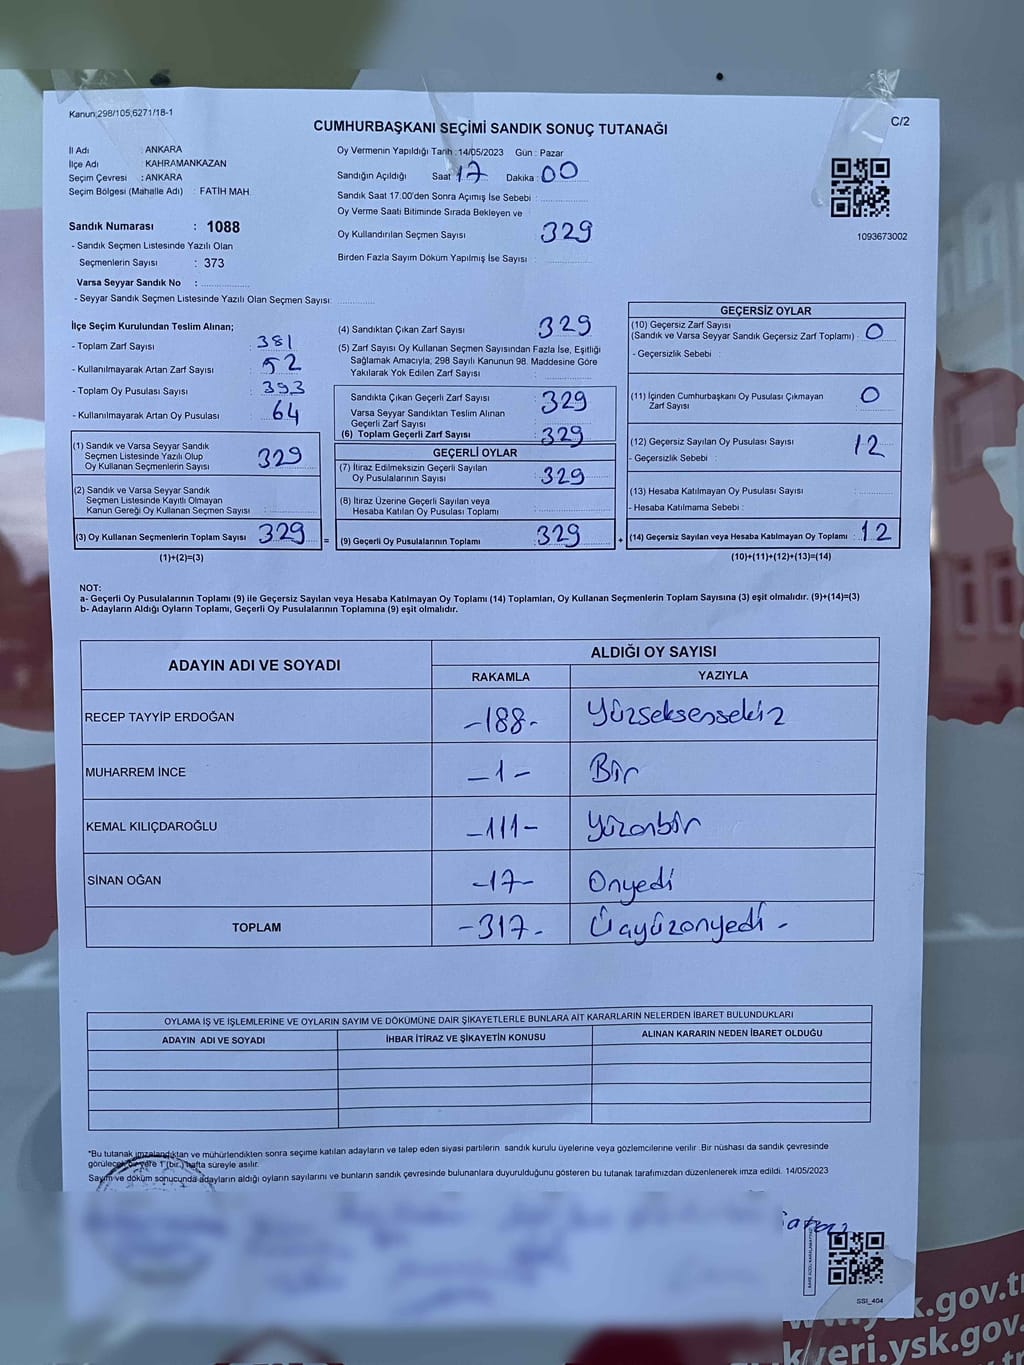 Kanun,298/105,6271/18-1
C/2
CUMHURBAŞKANI SEÇİMİ SANDIK SONUÇ TUTANAĞI
İl Adı : ANKARA
İlçe Adı : KAHRAMANKAZAN
Seçim Çevresi : ANKARA
Seçim Bölgesi (Mahalle Adı) : FATİH MAH.
Sandık Numarası : 1088
- Sandık Seçmen Listesinde Yazılı Olan
Seçmenlerin Sayısı : 373
Varsa Seyyar Sandık No :
- Seyyar Sandık Seçmen Listesinde Yazılı Olan Seçmen Sayısı:
Oy Vermenin Yapıldığı Tarih :14/05/2023 Gün : Pazar
Sandığın Açıldığı Saat : 17 Dakika : 00
Sandık Saat 17:00'den Sonra Açımış İse Sebebi :
Oy Verme Saati Bitiminde Sırada Bekleyen ve
Oy Kullandırılan Seçmen Sayısı : 329
Birden Fazla Sayım Döküm Yapılmış İse Sayısı :
1093673002
İlçe Seçim Kurulundan Teslim Alınan;
- Toplam Zarf Sayısı : 381
- Kullanılmayarak Artan Zarf Sayısı : 52
- Toplam Oy Pusulası Sayısı : 393
- Kullanılmayarak Artan Oy Pusulası : 64
(1) Sandık ve Varsa Seyyar Sandık
Seçmen Listesinde Yazılı Olup
Oy Kullanan Seçmenlerin Sayısı : 329
(2) Sandık ve Varsa Seyyar Sandık
Seçmen Listesinde Kayıtlı Olmayan
Kanun Gereği Oy Kullanan Seçmen Sayısı :
(3) Oy Kullanan Seçmenlerin Toplam Sayısı : 329
(1)+(2)=(3)
=
(4) Sandıktan Çıkan Zarf Sayısı : 329
(5) Zarf Sayısı Oy Kullanan Seçmen Sayısından Fazla İse, Eşitliği
Sağlamak Amacıyla; 298 Sayılı Kanunun 98. Maddesine Göre
Yakılarak Yok Edilen Zarf Sayısı :
Sandıkta Çıkan Geçerli Zarf Sayısı : 329
Varsa Seyyar Sandıktan Teslim Alınan
Geçerli Zarf Sayısı :
(6) Toplam Geçerli Zarf Sayısı : 329
GEÇERLİ OYLAR
(7) İtiraz Edilmeksizin Geçerli Sayılan
Oy Pusulalarının Sayısı : 329
(8) İtiraz Üzerine Geçerli Sayılan veya
Hesaba Katılan Oy Pusulası Toplamı :
(9) Geçerli Oy Pusulalarının Toplamı : 329
+
GEÇERSİZ OYLAR
(10) Geçersiz Zarf Sayısı
(Sandık ve Varsa Seyyar Sandık Geçersiz Zarf Toplamı) : 0
- Geçersizlik Sebebi :
(11) İçinden Cumhurbaşkanı Oy Pusulası Çıkmayan
Zarf Sayısı : 0
(12) Geçersiz Sayılan Oy Pusulası Sayısı : 12
- Geçersizlik Sebebi :
(13) Hesaba Katılmayan Oy Pusulası Sayısı :
- Hesaba Katılmama Sebebi :
(14) Geçersiz Sayılan veya Hesaba Katılmayan Oy Toplamı : 12
(10)+(11)+(12)+(13)=(14)
NOT:
a- Geçerli Oy Pusulalarının Toplamı (9) ile Geçersiz Sayılan veya Hesaba Katılmayan Oy Toplamı (14) Toplamları, Oy Kullanan Seçmenlerin Toplam Sayısına (3) eşit olmalıdır. (9)+(14)=(3)
b- Adayların Aldığı Oyların Toplamı, Geçerli Oy Pusulalarının Toplamına (9) eşit olmalıdır.
ADAYIN ADI VE SOYADI
ALDIĞI OY SAYISI
RAKAMLA YAZIYLA
RECEP TAYYİP ERDOĞAN -188- Yüzseksensekiz
MUHARREM İNCE -1- Bir
KEMAL KILIÇDAROĞLU -111- Yüzonbir
SİNAN OĞAN -17- Onyedi
TOPLAM -317- Üçyüzonyedi -
OYLAMA İŞ VE İŞLEMLERİNE VE OYLARIN SAYIM VE DÖKÜMÜNE DAİR ŞİKAYETLERLE BUNLARA AİT KARARLARIN NELERDEN İBARET BULUNDUKLARI
ADAYIN ADI VE SOYADI İHBAR İTİRAZ VE ŞİKAYETİN KONUSU ALINAN KARARIN NEDEN İBARET OLDUĞU
*Bu tutanak imzalandıktan ve mühürlendikten sonra seçime katılan adayların ve talep eden siyasi partilerin sandık kurulu üyelerine veya gözlemcilerine verilir. Bir nüshası da sandık çevresinde
görülecek bir yere 1 (bir) hafta süreyle asılır.
Sayım ve döküm sonucunda adayların aldığı oyların sayılarını ve bunların sandık çevresinde bulunanlara duyurulduğunu gösteren bu tutanak tarafımızdan düzenlenerek imza edildi. 14/05/2023
SSI_404
k.gov.t
veri.ysk.gov.